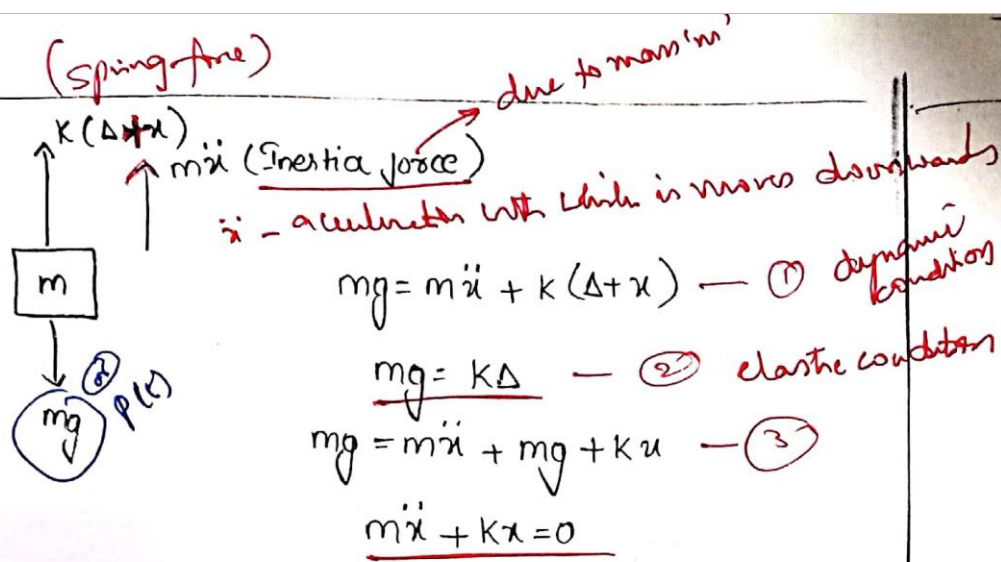 (Spring force)
due to mass 'm'
K(Δ+x)
mẍ (Inertia force)
ẍ - acceleration with which it moves downwards
m
mg = mẍ + K(Δ+x) — ① dynamic condition
mg = KΔ — ② elastic condition
mg
P(t)
mg = mẍ + mg + Kx — ③
mẍ + Kx = 0